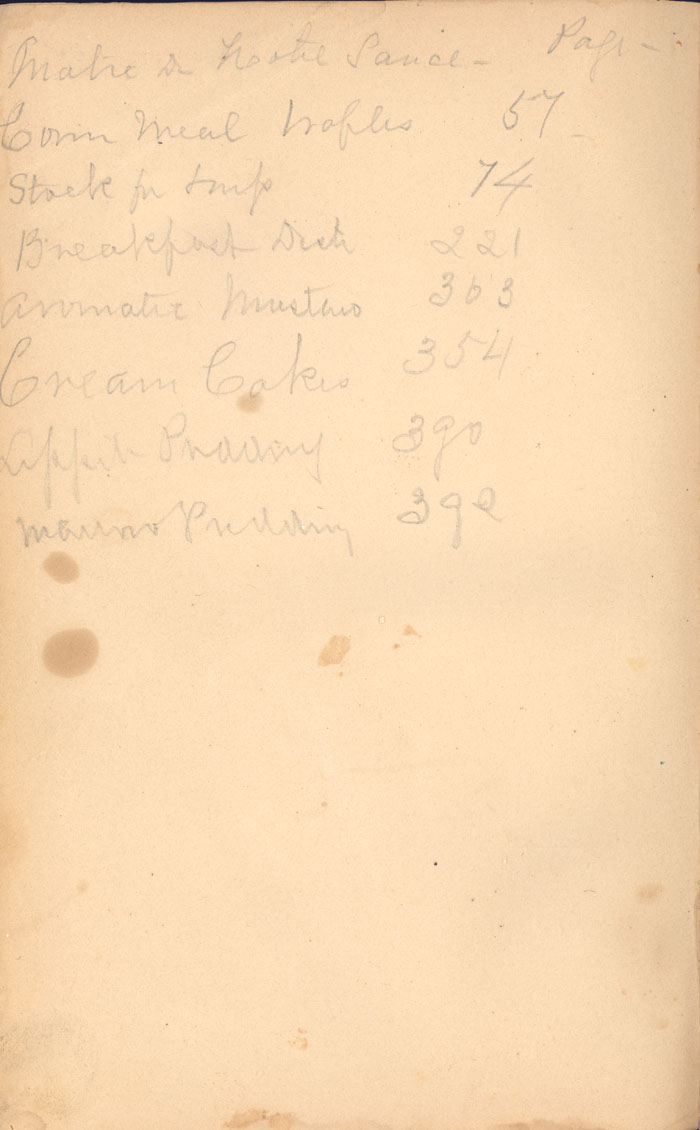 Matre D Hotel Sauce - Page -
Corn Meal Wafles 57 -
Stock for Soup 74
Breakfast Dish 221
Aromatic Mustard 303
Cream Cakes 354
Pudding 390
Pudding 392